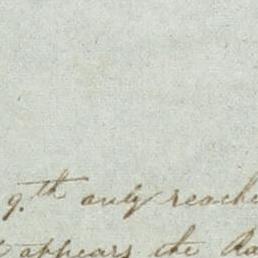 9.th only reache
appears the